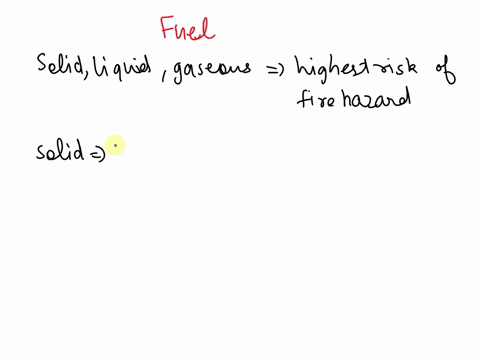 Fuel
Solid, liquid, gaseous => highest risk of
fire hazard
solid =>